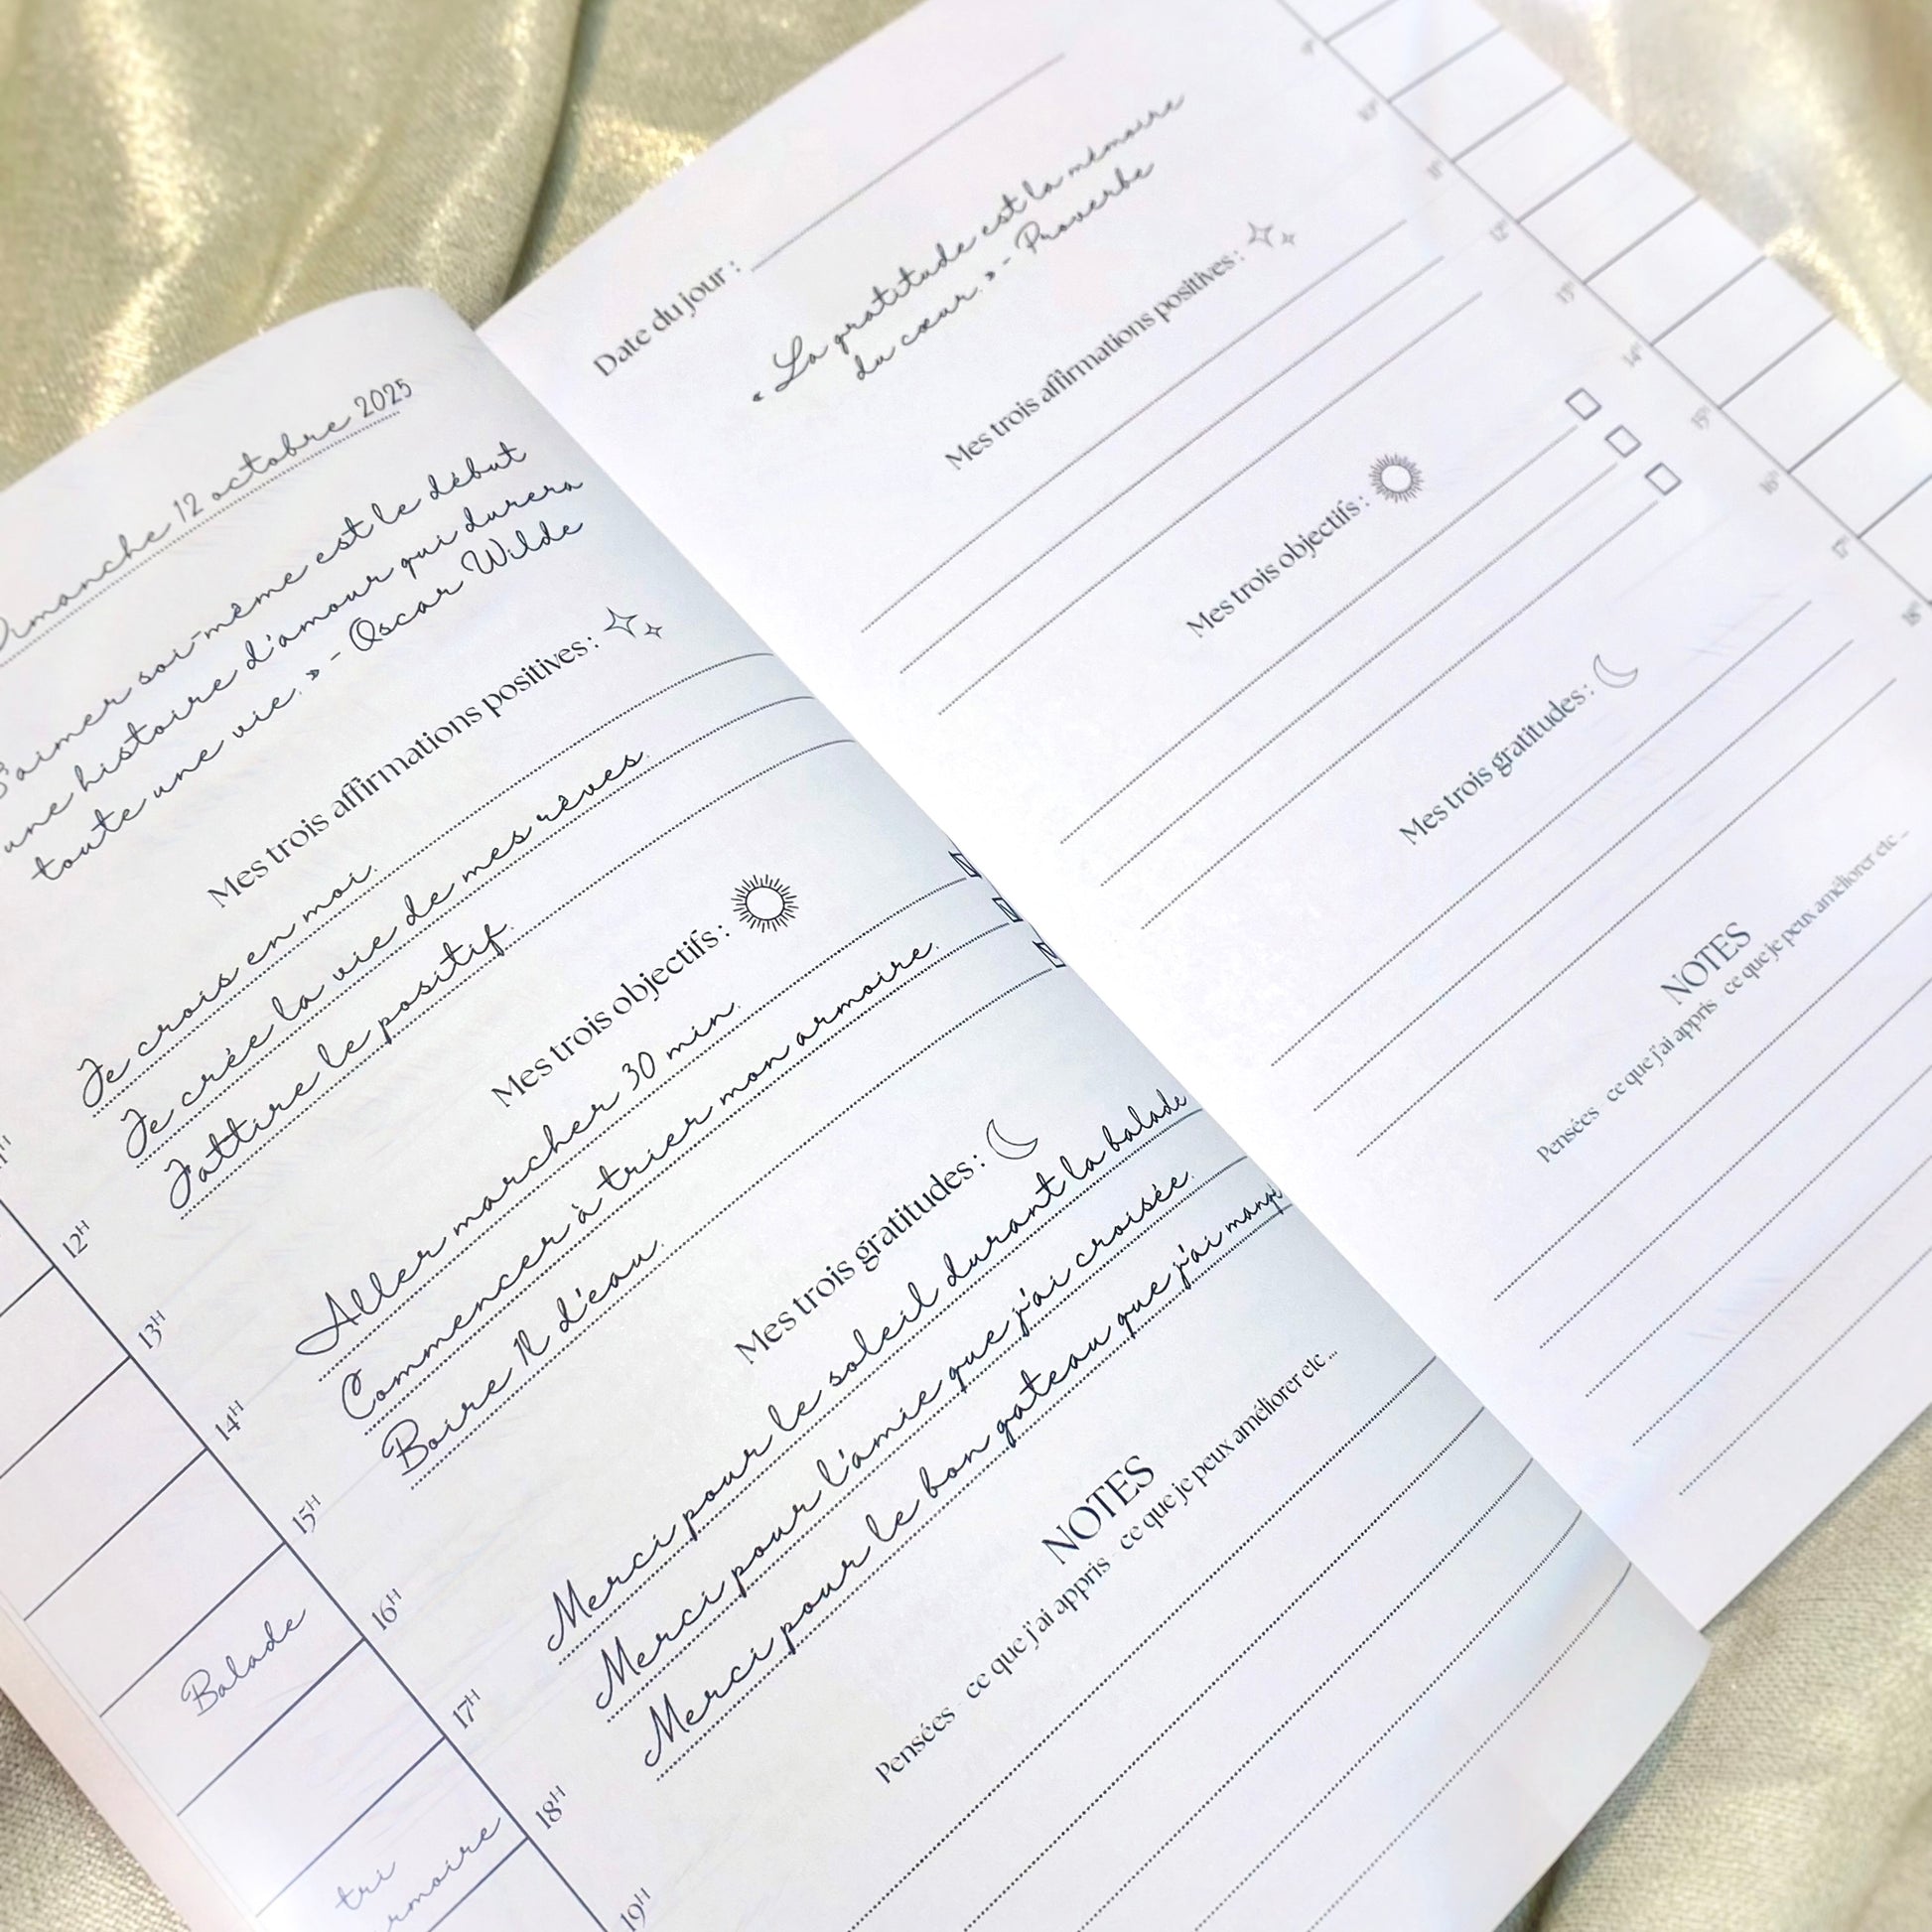 Dimanche 12 octobre 2025
S'aimer soi-même est le début
une histoire d'amour qui durera
toute une vie. » - Oscar Wilde
Mes trois affirmations positives :
Je crois en moi.
Je crée la vie de mes rêves.
J'attire le positif.
Mes trois objectifs :
Aller marcher 30 min.
Commencer à trier mon armoire.
Boire 1l d'eau.
Mes trois gratitudes :
Merci pour le soleil durant la balade
Merci pour l'amie que j'ai croisée.
Merci pour le bon gateau que j'ai mangé
NOTES
Pensées ce que j'ai appris ce que je peux améliorer etc...
12H
13H
14H
15H
16H
Balade
17H
18H
tri
armoire
19H
Date du jour :
« La gratitude est la mémoire
du cœur. » - Proverbe
Mes trois affirmations positives :
Mes trois objectifs :
Mes trois gratitudes :
NOTES
Pensées ce que j'ai appris ce que je peux améliorer etc...
9H
10H
11H
12H
13H
14H
15H
16H
17H
18H